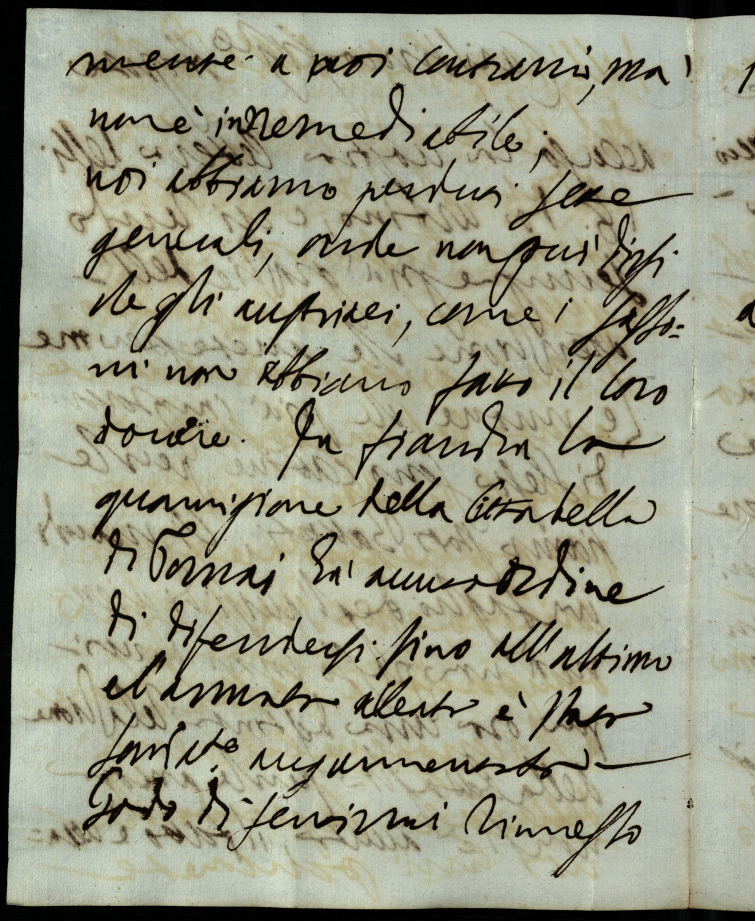 mente a noi contrario, ma
non è irremediabile;
noi abbiamo perduti sette
generali, onde non può dirsi
che gli austriaci, come i Sasso=
ni non abbiano fatto il loro
dovere. In fiandra la
guarnigione della Cittadella
di Tornai hà avuto ordine
di difendersi sino all'ultimo
el'armata alleata è stata
augumentata
Godo di sentirvi rimesso